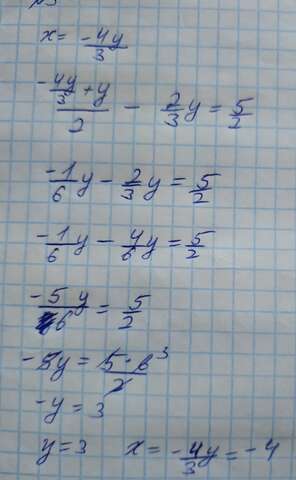 x = -4y/3
(-4y/3 + y)/2 - 2/3 y = 5/2
-1/6 y - 2/3 y = 5/2
-1/6 y - 4/6 y = 5/2
-5y/6 = 5/2
-5y = 5·6³/2
-y = 3
y = 3 x = -4/3 y = -4